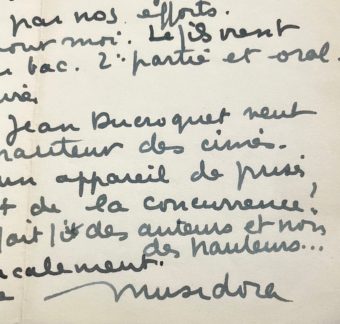 par nos efforts.
pour moi. Le fils vient
bac. 2e partie et oral.
Jean Ducroquet veut
hauteur des cimes.
un appareil de prises
de la concurrence !
fait des auteurs et non
des hauteurs...
calement.
Musidora